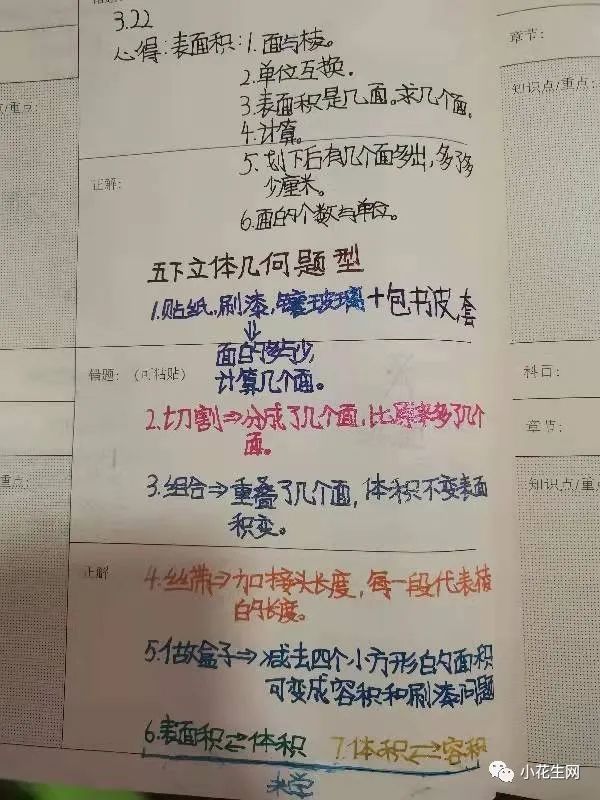 3.22
章节：
心得：表面积：1.面与棱。
2.单位互换.
点/重点：
知识点/重点：
3.表面积是几面。求几个面。
4.计算。
5.划下后有几个面多出，多了多
正解：
少厘米。
6.面的个数与单位。
五下立体几何题型
1.贴纸，刷漆，镶玻璃+包书皮，套
面的多与少，
错题：（可粘贴）
计算几个面。
科目：
2.切割⇒分成了几个面，比原来多了几个
面。
章节：
重点：
知识点/重点
3.组合⇒重叠了几个面，体积不变表面
积变。
正解
4.丝带⇒加接头长度，每一段代表棱
的长度。
5.做盒子⇒减去四个小方形的面积
可变成容积和刷漆问题
6.表面积⇄体积 7.体积⇄容积
未学
小花生网